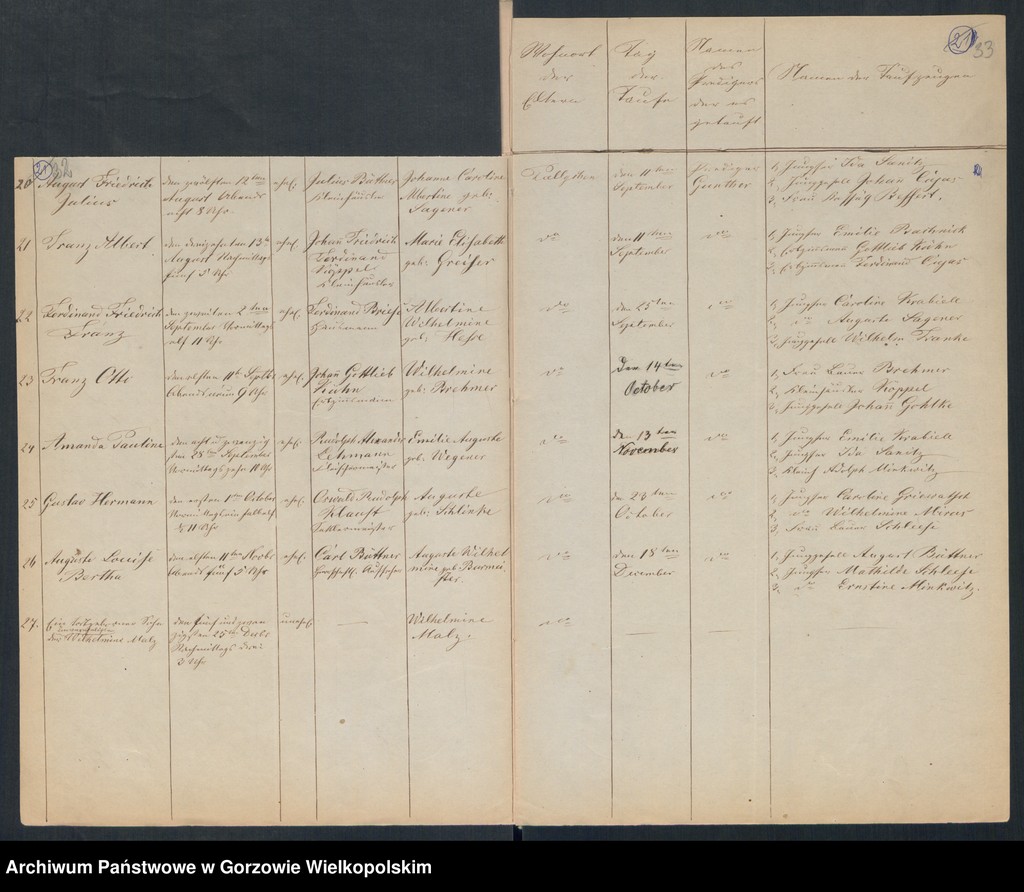 21
33
Wohnort
der
Eltern
Tag
der
Taufe
Namen
des
Predigers
der es
getauft
Namen der Taufzeugen
21 32
20 August Friedrich
Julius
den zwölften 12ten
August Abends
acht 8 Uhr
ehel.
Julius Büttner
Johanne Caroline
Albertine geb.
Sagener
den 11ten
September
Prediger
Guenther
1, Jungfer Ida Sanitz
2, Junggeselle Johan Cujas
3, Frau
21 Franz Albert
den dreizehnten 13ten
August Nachmittags
fünf 5 Uhr
ehel.
Johan Friedrich
Ferdinand
Köppel
Marie Elisabeth
geb. Greiser
do
den 11ten
September
do
1, Jungfer Emilie
2, Gottlieb Kühn
3, Ferdinand Cujas
22 Ferdinand Friedrich
Franz
den zweiten 2ten
September Vormittags
elf 11 Uhr
ehel.
Ferdinand Briese
Albertine
Wilhelmine
geb. Hesse
do
den 25ten
September
do
1, Jungfer Caroline Krabiell
2, do Auguste Sagener
3, Junggeselle Wilhelm Franke
23 Franz Otto
den elften 11ten Septbr
Abends neun 9 Uhr
ehel.
Johan Gottlieb
Kühn
Wilhelmine
geb. Brehmer
do
Den 14ten
October
do
1, Frau Laura Brehmer
2, Koppel
3, Junggeselle Johan Gohlke
24 Amanda Pauline
den acht u zwanzig
sten 28ten September
Vormittags zehn 10 Uhr
ehel.
Rudolph Alexander
Lehmann
Emilie Auguste
geb. Wegener
do
den 13ten
November
do
1, Jungfer Emilie Krabiell
2, Jungfer Ida Sanitz
3, Adolph Minkwitz
25 Gustav Hermann
den ersten 1ten October
Vormittags
11 Uhr
ehel.
Oswald Rudolph
Klaust
Sattlermeister
Auguste
geb. Schlinke
do
den 23ten
October
do
1, Jungfer Caroline
2, do Wilhelmine
3, Frau Schleese
26 Auguste Louise
Bertha
den elften 11ten Novbr
Abends fünf 5 Uhr
ehel.
Carl Büttner
Auguste Wilhel
mine geb. Burmei
ster.
do
den 18ten
December
do
1, Junggeselle August Büttner
2, Jungfer Mathilde Schleese
3, do Ernstine Minkwitz.
27. Ein todtgeborner Sohn
der Wilhelmine Malz
den fünf und zwan
zigsten 25ten Decbr
Nachmittags drei
3 Uhr
unehel.
Wilhelmine
Malz.
do
Archiwum Państwowe w Gorzowie Wielkopolskim